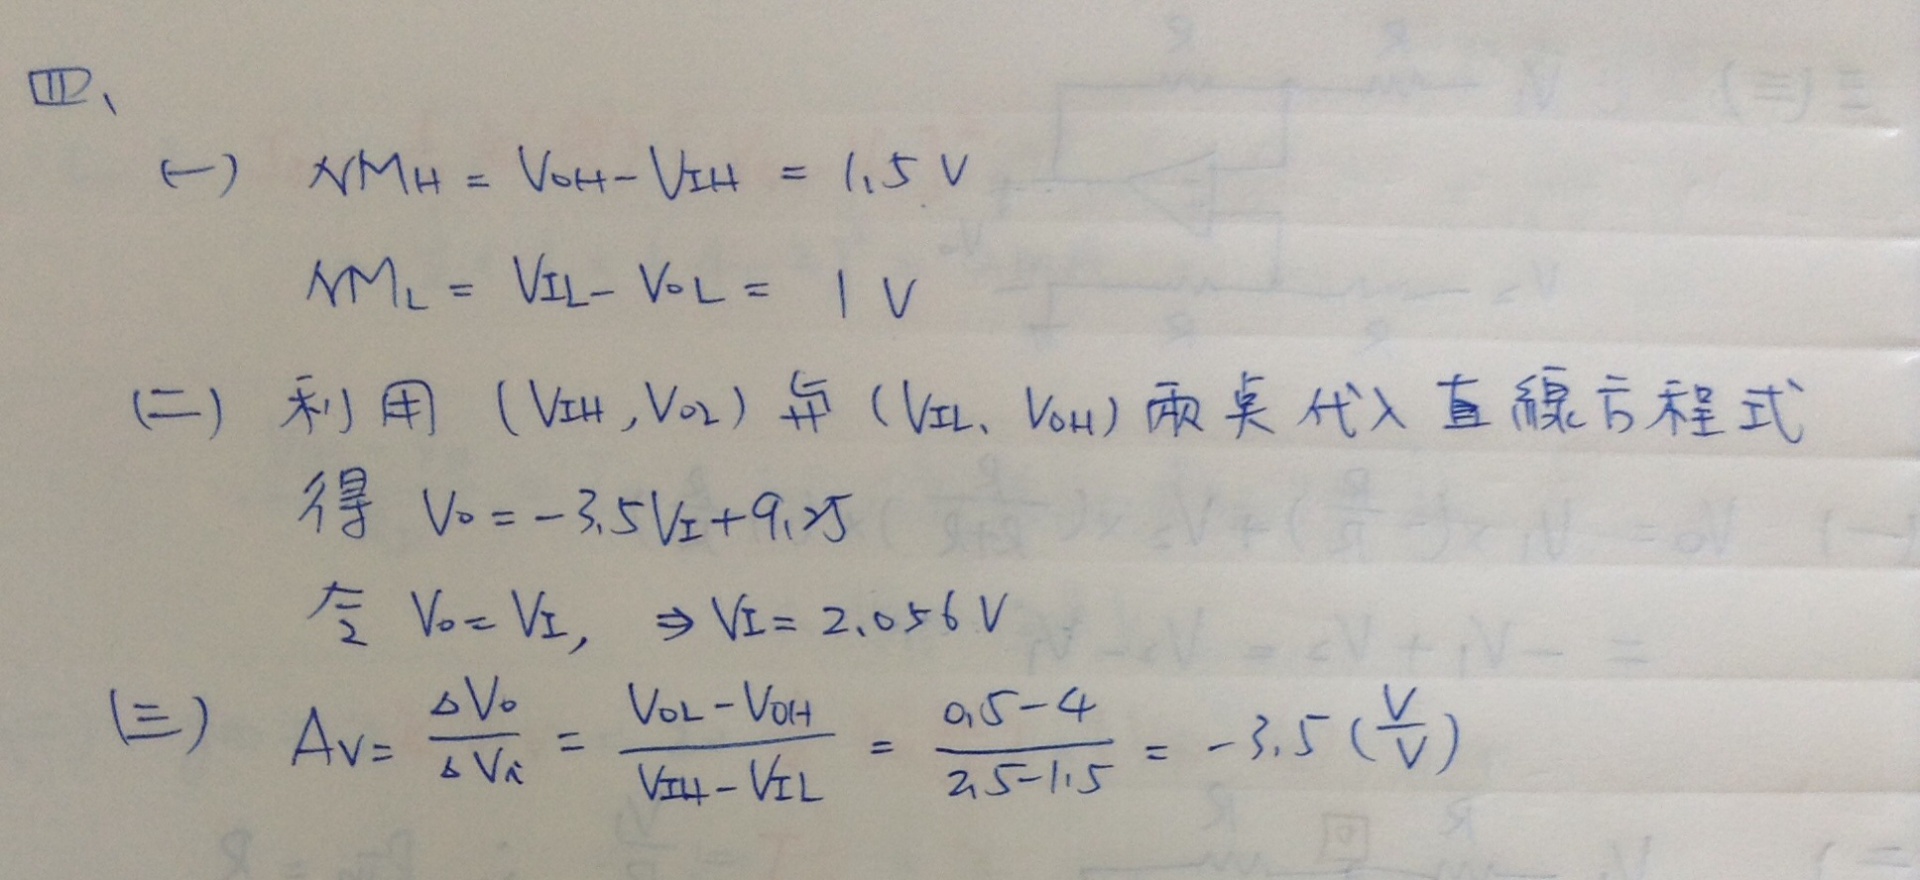 四、
(一) NMH = VOH - VIH = 1.5 V
NML = VIL - VOL = 1 V
(二) 利用 (VIH, VOL) 与 (VIL、VOH) 兩点代入直線方程式
得 Vo = -3.5VI + 9.25
令 Vo = VI, ⇒ VI = 2.056 V
(三) AV = ΔVo/ΔVi = (VOL - VOH)/(VIH - VIL) = (0.5-4)/(2.5-1.5) = -3.5 (V/V)